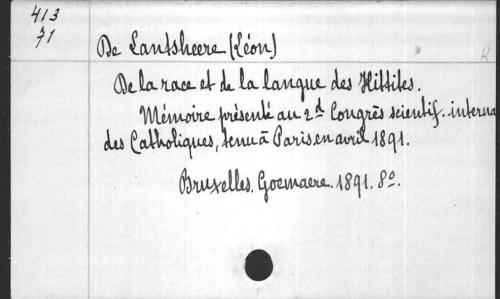 413
71
De Lantsheere (Léon)
De la race et de la langue des Hittites.
Mémoire présenté au 2d Congrès scientif. interna
des Catholiques, tenu à Paris en avril 1891.
Bruxelles. Goemaere. 1891. 8o.